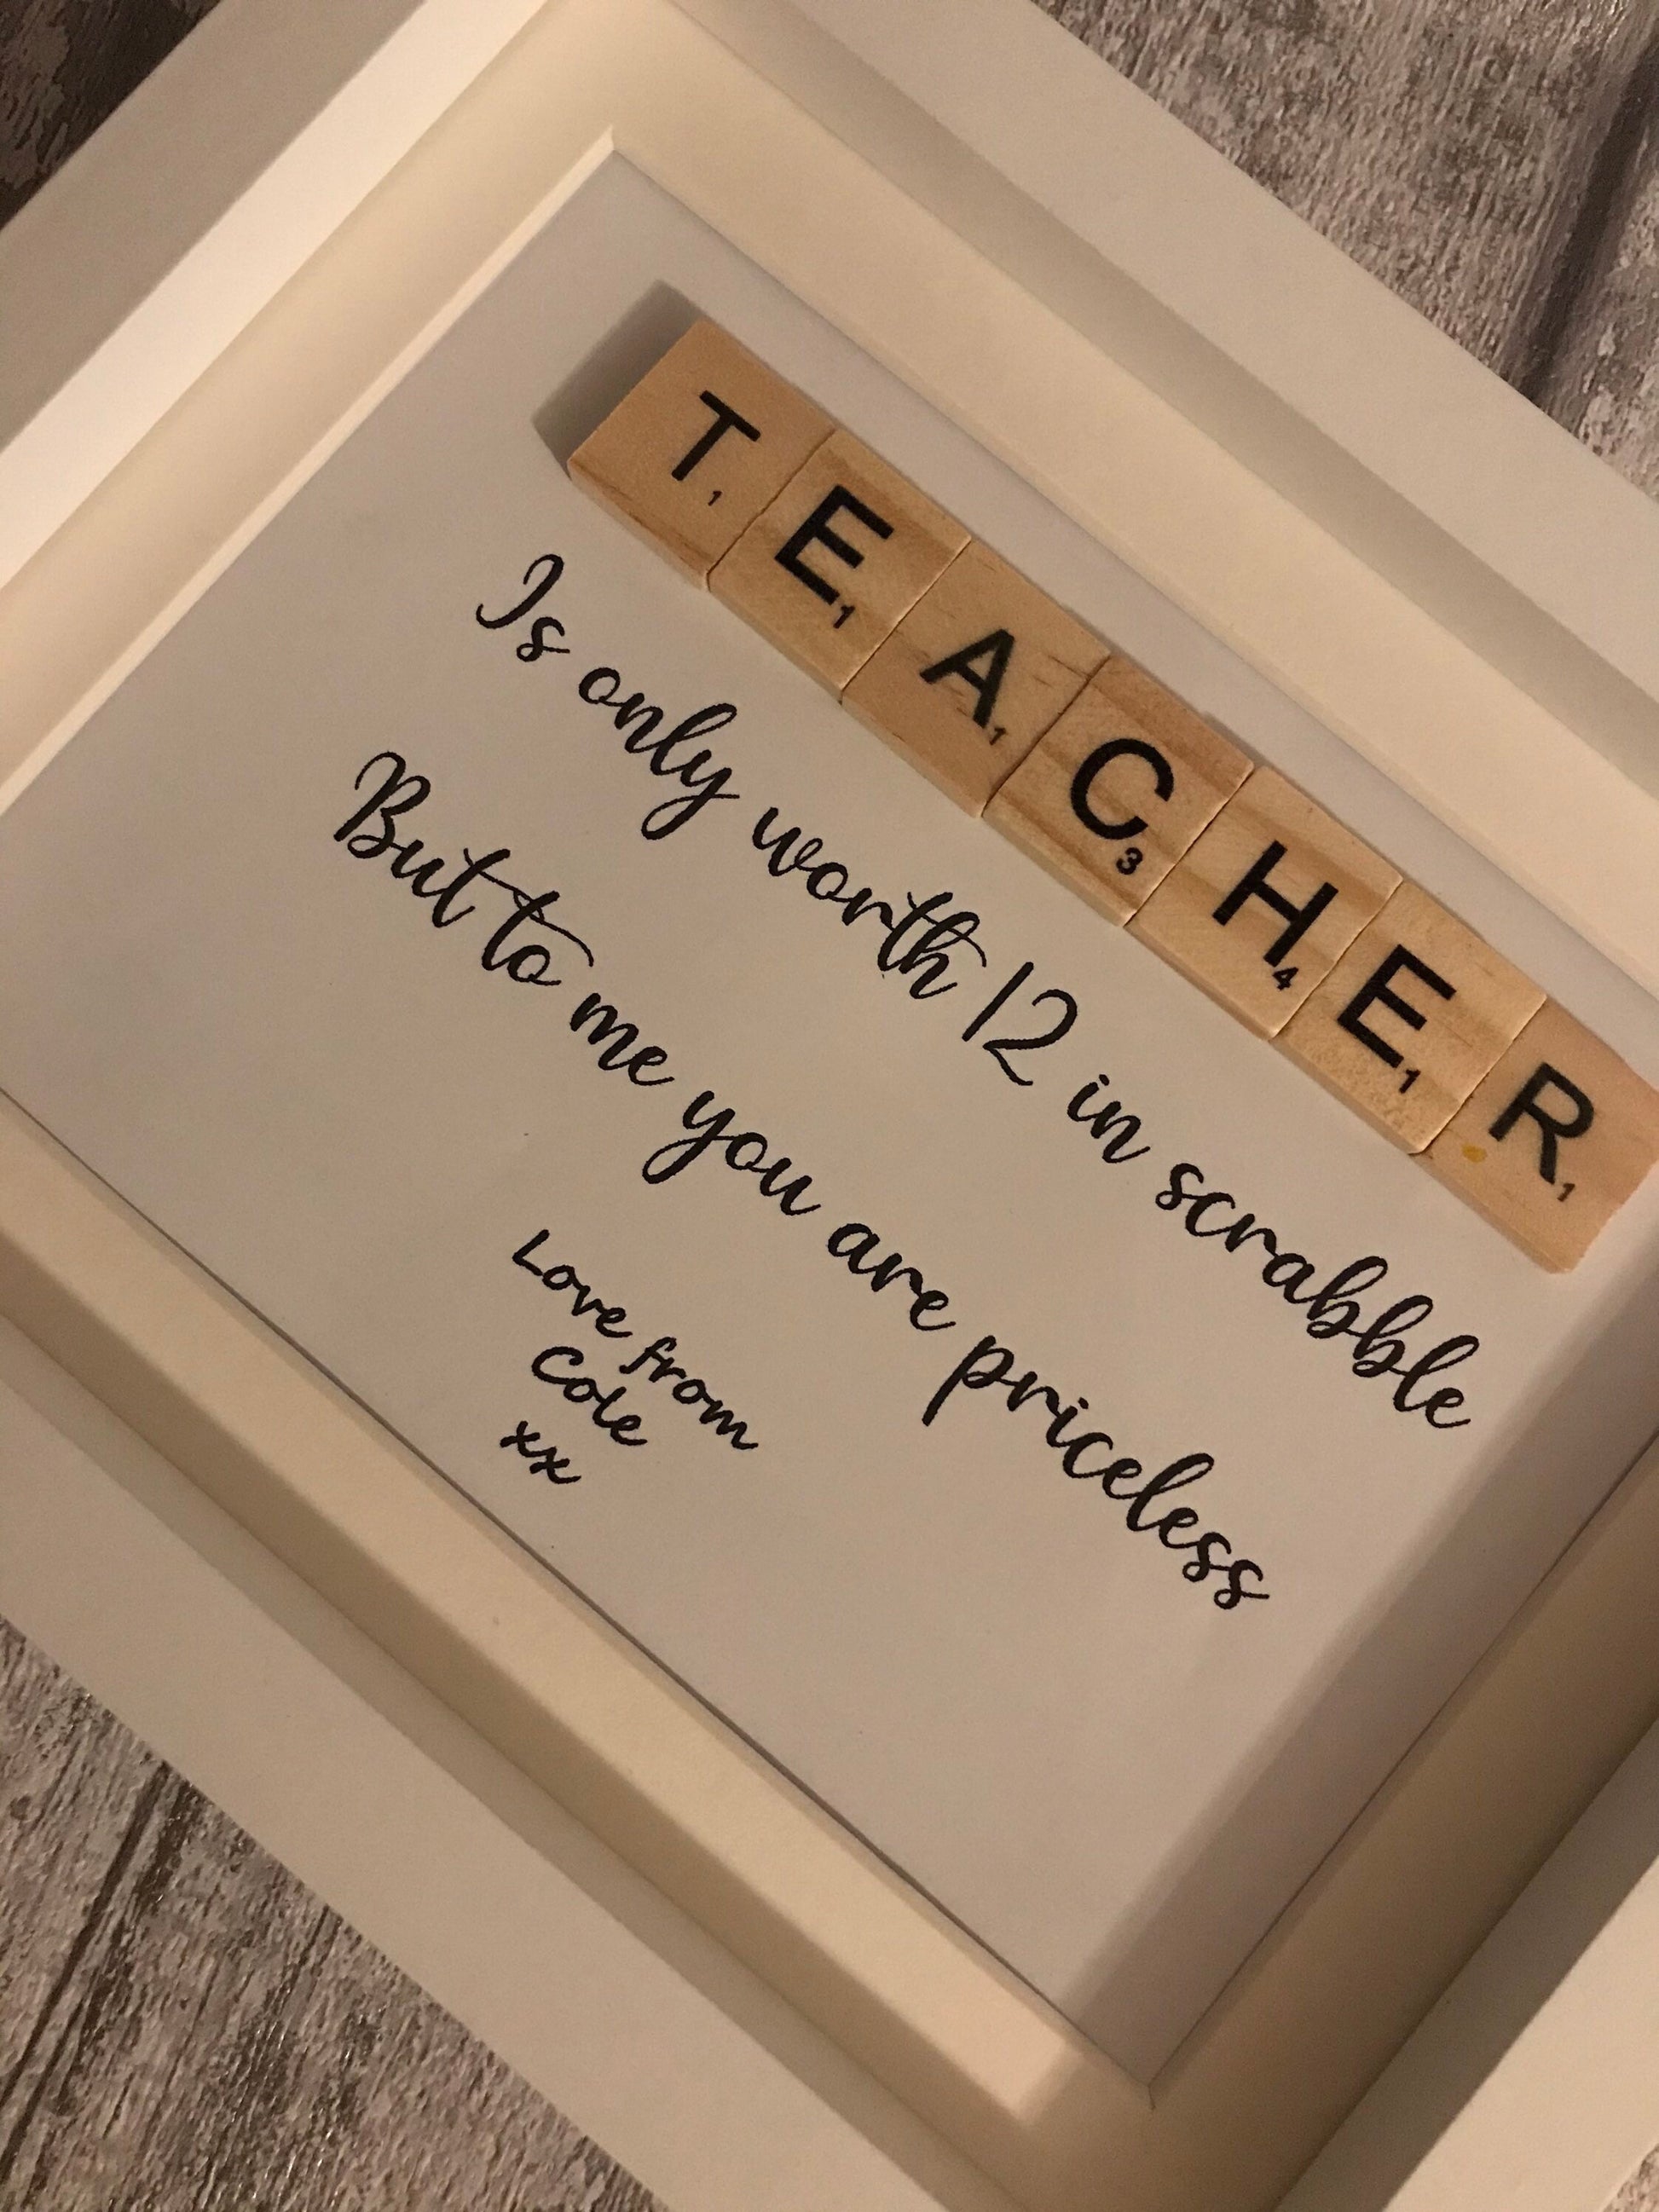 T1 E1 A1 C3 H4 E1 R1
Is only worth 12 in scrabble
But to me you are priceless
Love from
Cole
xx